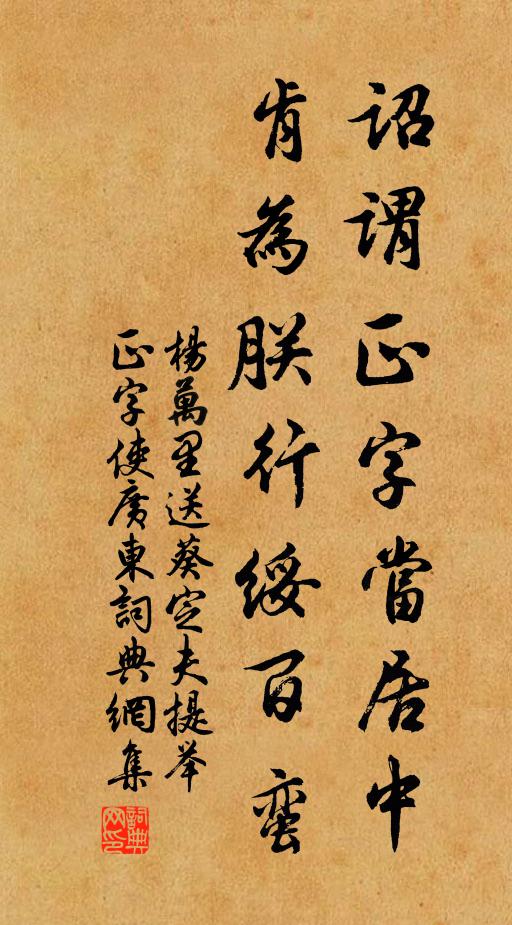 詔謂正字當居中
肯為朕行綏百蛮
楊萬里送葵定夫提举
正字使廣東詞典網集
詞典
网印